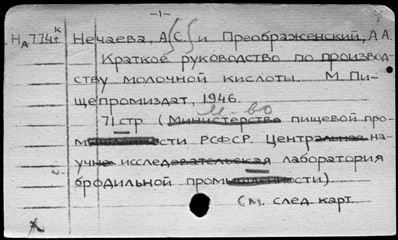 -1-
НА774к Нечаева, А.С. и Преображенский, А.А.
Краткое руководство по производ-
ству молочной кислоты. М. Пи-
щепромиздат, 1946.
М-во
71 стр. (Министерство пищевой про-
мышленности РСФСР. Центральная на-
учно исследовательская лаборатория
бродильной промышленности)
См. след. карт.